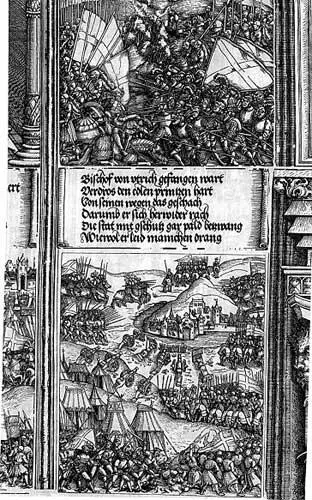 Bischof von vtrich gefangen wart
Verdros den edlen printzen hart
Von seinen wegen das geschach
Darumb er sich herwider rach
Die stat mit gschutz gar pald betzwang
Wiewol er leid manichen drang
ert